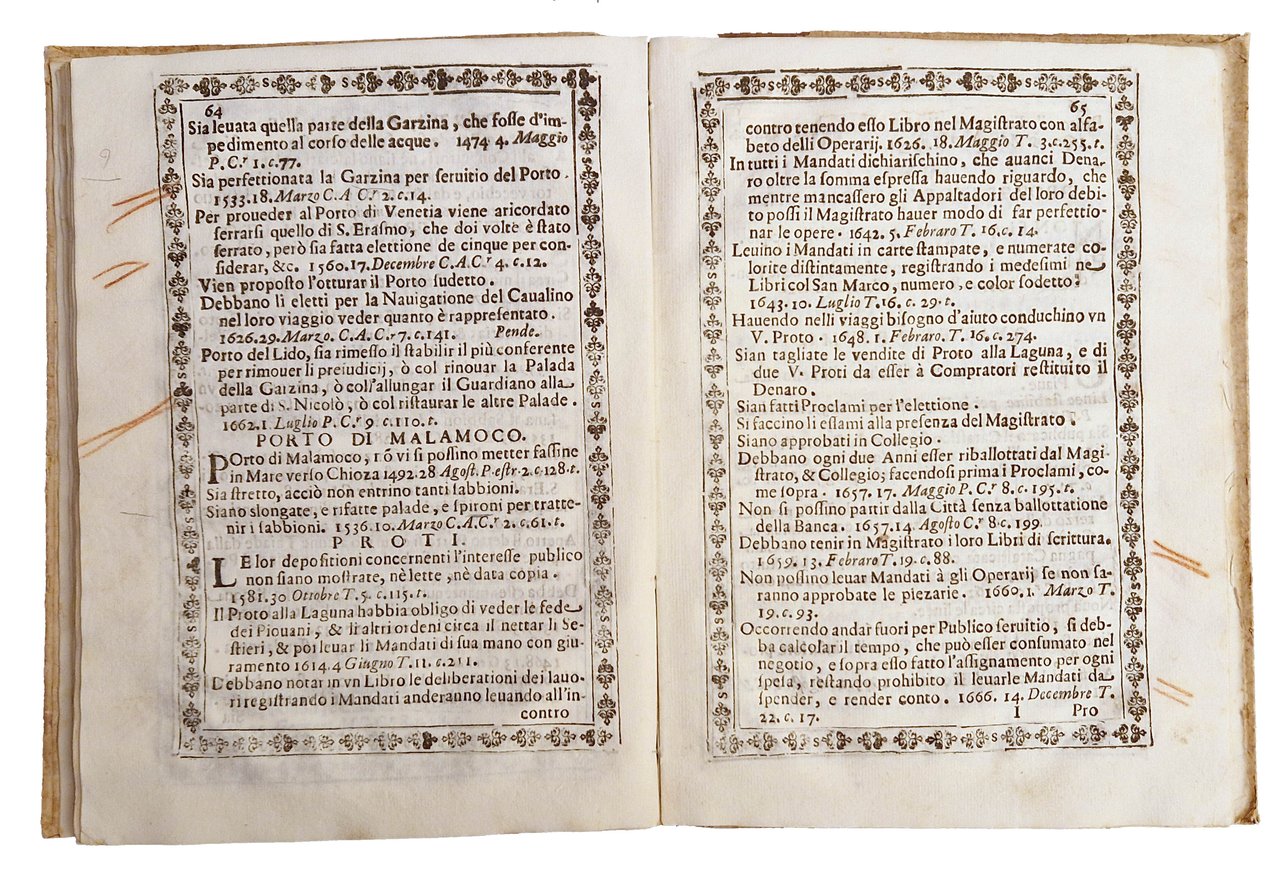 64
Sia leuata quella parte della Garzina, che fosse d'im-
pedimento al corso delle acque. 1474 4. Maggio
P. C.r 1. c. 77.
Sia perfettionata la Garzina per seruitio del Porto.
1533. 18. Marzo C. A C.r 2. c. 14.
Per proueder al Porto di Venetia viene aricordato
serrarsi quello di S. Erasmo, che doi volte è stato
serrato, però sia fatta elettione de cinque per con-
siderar, &c. 1560. 17. Decembre C. A. C.r 4. c. 12.
Vien proposto l'otturar il Porto sudetto.
Debbano li eletti per la Nauigatione del Caualino
nel loro viaggio veder quanto è rappresentato.
1626. 29. Marzo. C. A. C.r 7. c. 141. Pende.
Porto del Lido, sia rimesso il stabilir il più conferente
per rimouer li preiudicij, ò col rinouar la Palada
della Garzina, ò coll'allungar il Guardiano alla
parte di S. Nicolò, ò col ristaurar le altre Palade.
1662. 1. Luglio P. C.r 9. c. 110. t.
PORTO DI MALAMOCO.
POrto di Malamoco, nō vi si possino metter fassine
in Mare verso Chioza 1492. 28 Agost. P. estr. 2. c. 128. t.
Sia stretto, acciò non entrino tanti sabbioni.
Siano slongate, e rifatte palade, e spironi per tratte-
nir i sabbioni. 1536. 10. Marzo C. A. C.r 2. c. 61. t.
PROTI.
LE lor depositioni concernenti l'interesse publico
non siano mostrate, nè lette, nè data copia.
1581. 30 Ottobre T. 5. c. 115. t.
Il Proto alla Laguna habbia obligo di veder le fede
dei Piouani, & li altri ordeni circa il nettar li Se-
stieri, & poi leuar li Mandati di sua mano con giu-
ramento 1614. 4 Giugno T. 11. c. 211.
Debbano notar in vn Libro le deliberationi dei lauo-
ri registrando i Mandati anderanno leuando all'in-
contro
65
contro tenendo esso Libro nel Magistrato con alfa-
beto delli Operarij. 1626. 18. Maggio T. 3. c. 255. t.
In tutti i Mandati dichiarischino, che auanci Dena-
ro oltre la somma espressa hauendo riguardo, che
mentre mancassero gli Appaltadori del loro debi-
to possi il Magistrato hauer modo di far perfettio-
nar le opere. 1642. 5. Febraro T. 16. c. 14.
Leuino i Mandati in carte stampate, e numerate co-
lorite distintamente, registrando i medesimi ne
Libri col San Marco, numero, e color sodetto.
1643. 10. Luglio T. 16. c. 29. t.
Hauendo nelli viaggi bisogno d'aiuto conduchino vn
V. Proto. 1648. 1. Febraro. T. 16. c. 274.
Sian tagliate le vendite di Proto alla Laguna, e di
due V. Proti da esser à Compratori restituito il
Denaro.
Sian fatti Proclami per l'elettione.
Si faccino li esami alla presenza del Magistrato.
Siano approbati in Collegio.
Debbano ogni due Anni esser riballottati dal Magi-
strato, & Collegio; facendosi prima i Proclami, co-
me sopra. 1657. 17. Maggio P. C.r 8. c. 195. t.
Non si possino partir dalla Città senza ballottatione
della Banca. 1657. 14. Agosto C.r 8 c. 199.
Debbano tenir in Magistrato i loro Libri di scrittura.
1659. 13. Febraro T. 19. c. 88.
Non possino leuar Mandati à gli Operarij se non sa-
ranno approbate le piezarie. 1660. 1. Marzo T.
19. c. 93.
Occorrendo andar fuori per Publico seruitio, si deb-
ba calcolar il tempo, che può esser consumato nel
negotio, e sopra esso fatto l'assignamento per ogni
spesa, restando prohibito il leuarle Mandati da
spender, e render conto. 1666. 14. Decembre T.
22. c. 17.
I Pro